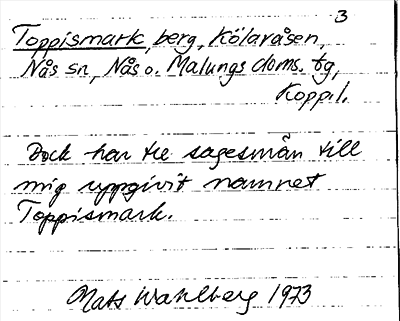 3
Toppismark, berg, Kölaråsen,
Nås sn, Nås o. Malungs doms. tg,
Koppl.
Dock har tre sagesmän till
mig uppgivit namnet
Toppismark.
Mats Wahlberg 1973